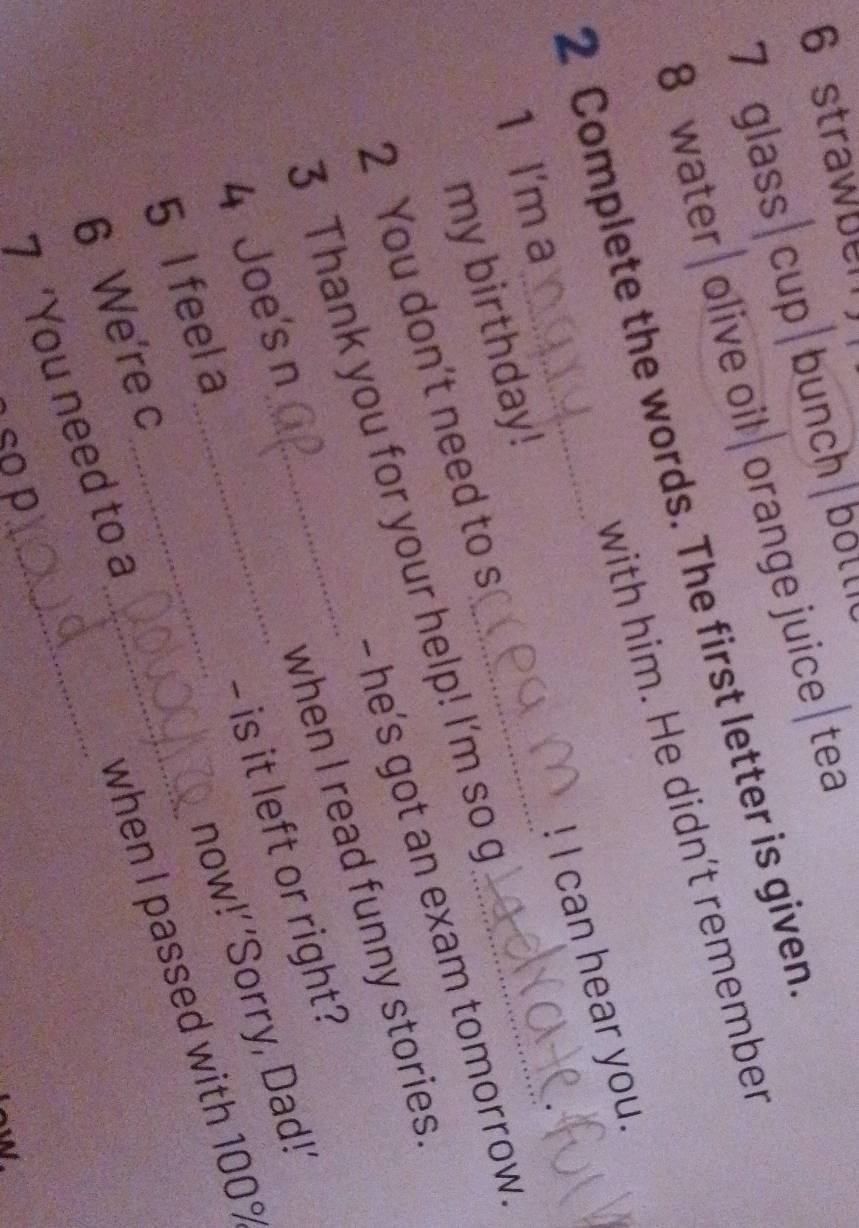 6 strawberry
7 glass | cup | bunch | bottle
8 water | olive oil | orange juice | tea
2 Complete the words. The first letter is given.
1 I'm a ngry with him. He didn't remember
my birthday!
2 You don't need to scream ! I can hear you.
3 Thank you for your help! I'm so g
4 Joe's n – he's got an exam tomorrow.
5 I feel a when I read funny stories.
6 We're c – is it left or right?
7 'You need to a now!' 'Sorry, Dad!'
so p when I passed with 100%